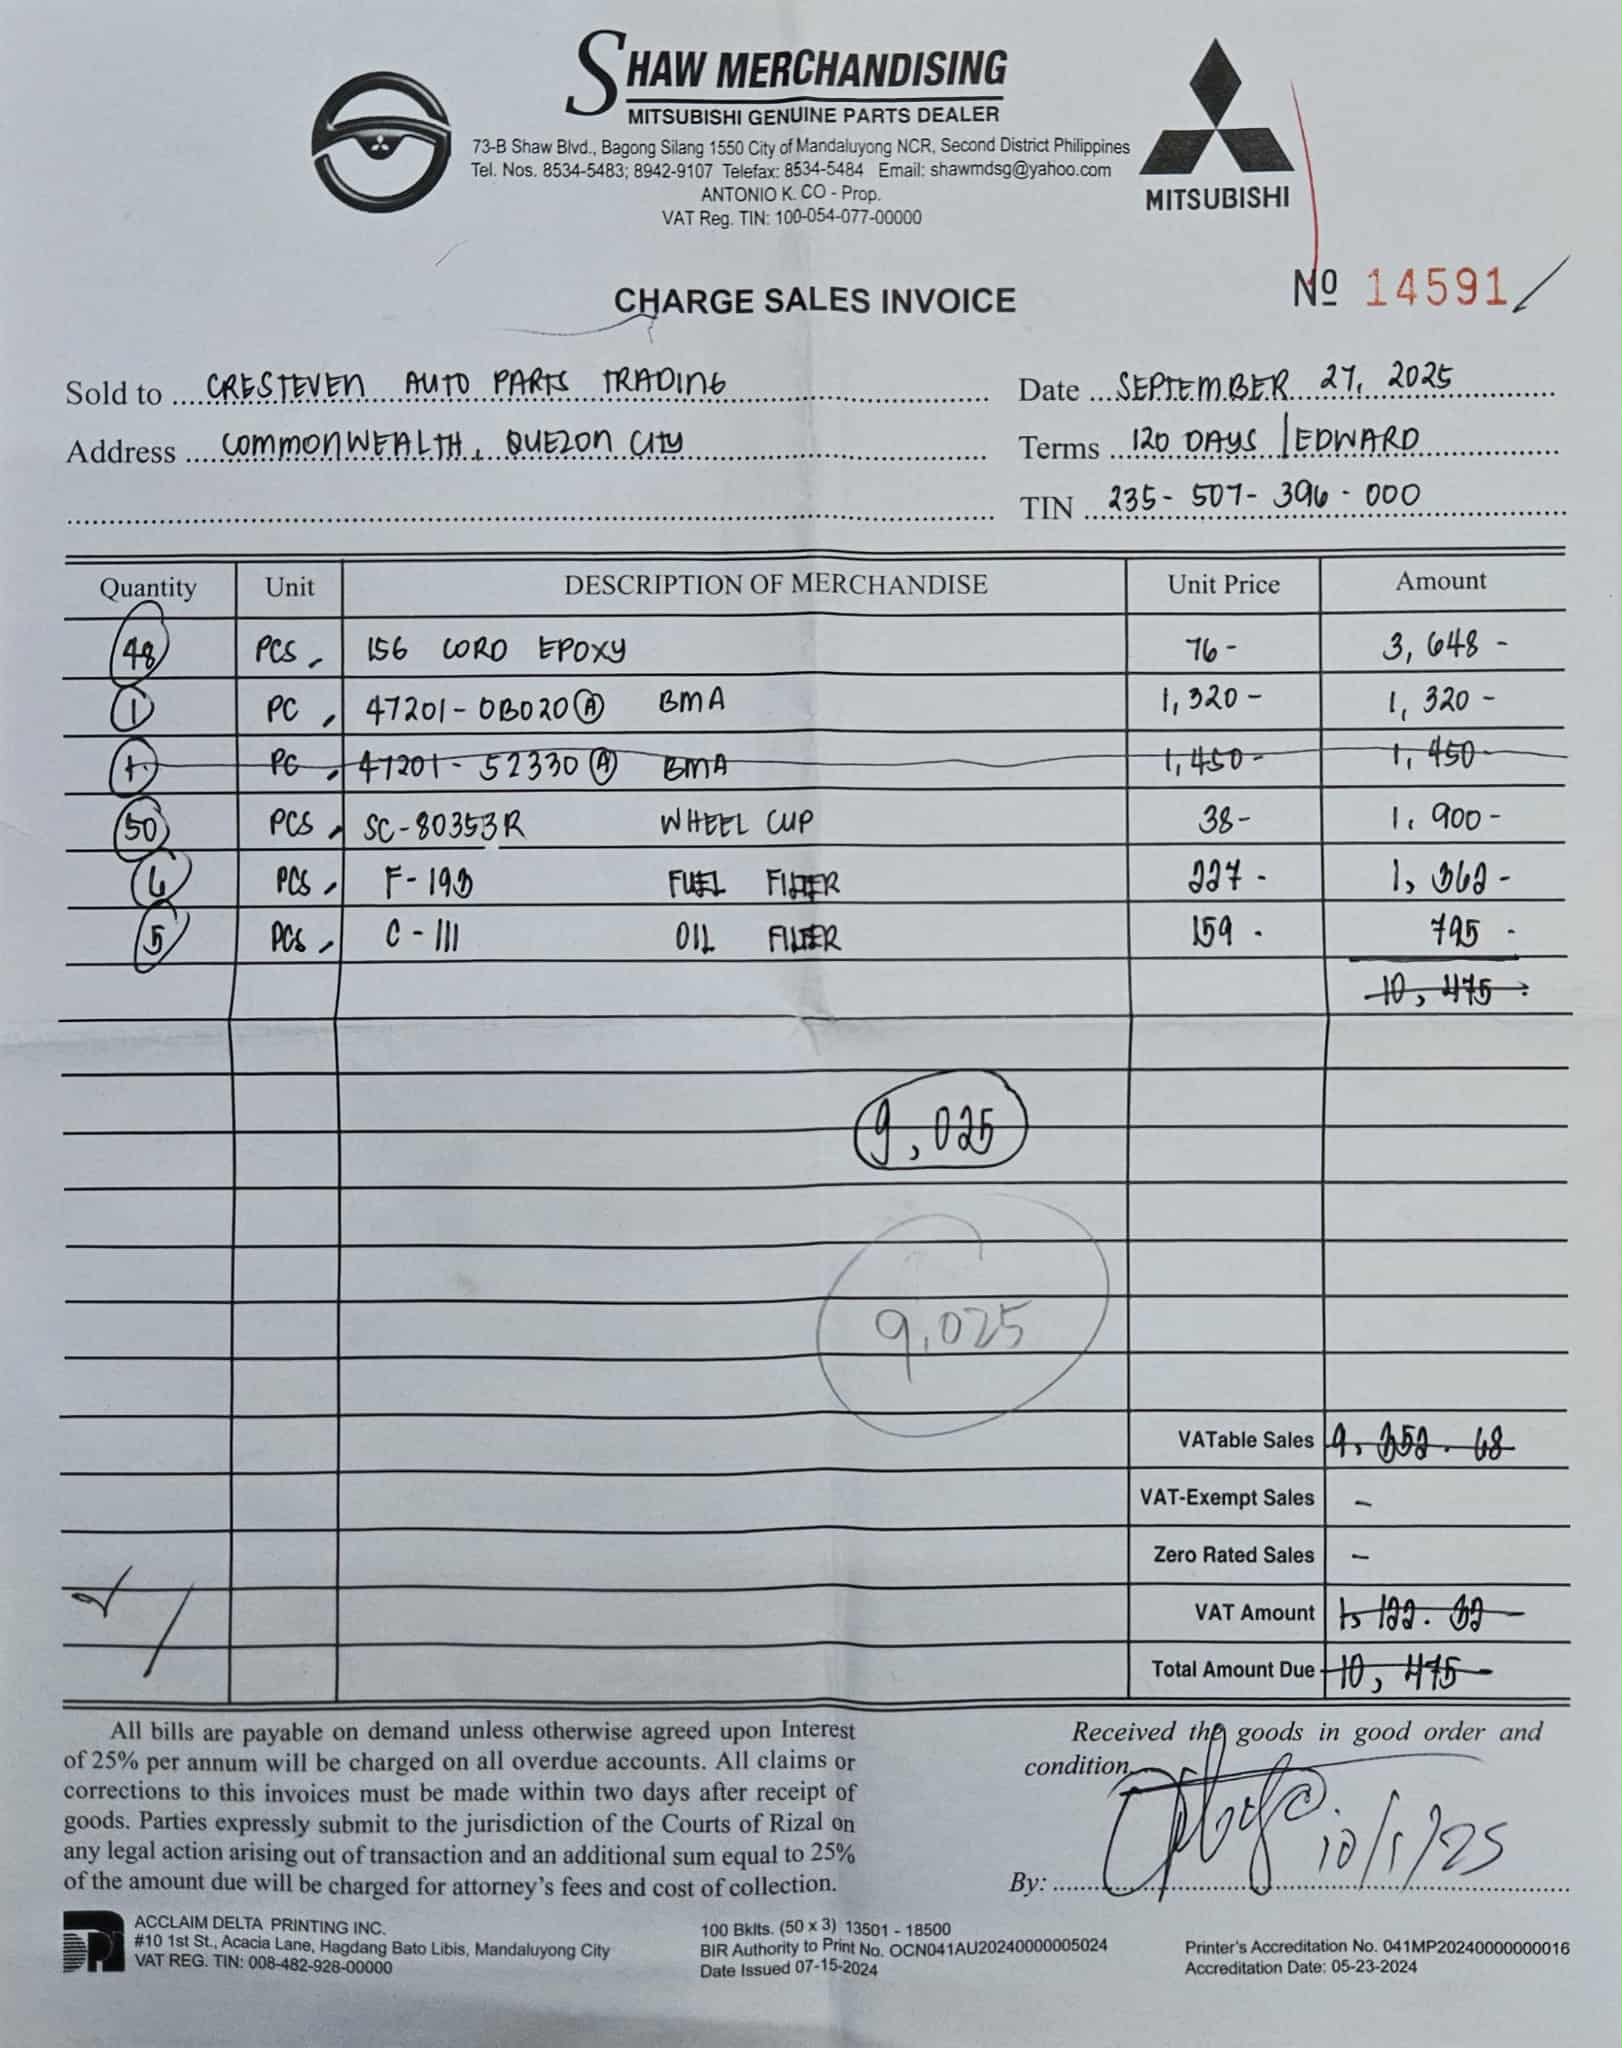 SHAW MERCHANDISING
MITSUBISHI GENUINE PARTS DEALER
73-B Shaw Blvd., Bagong Silang 1550 City of Mandaluyong NCR, Second District Philippines
Tel. Nos. 8534-5483; 8942-9107 Telefax: 8534-5484 Email: shawmdsg@yahoo.com
ANTONIO K. CO - Prop.
VAT Reg. TIN: 100-054-077-00000
MITSUBISHI
CHARGE SALES INVOICE
Nº 14591
Sold to CRESTEVEN AUTO PARTS TRADING
Date SEPTEMBER 27, 2025
Address COMMONWEALTH, QUEZON CITY
Terms 120 DAYS / EDWARD
TIN 235-507-396-000
Quantity Unit DESCRIPTION OF MERCHANDISE Unit Price Amount
48 PCS 156 CORD EPOXY 76- 3,648-
1 PC 47201-0B020 A BMA 1,320- 1,320-
1 PC 47201-52330 A BMA 1,450- 1,450-
50 PCS SC-80353R WHEEL CUP 38- 1,900-
6 PCS F-193 FUEL FILTER 227- 1,362-
5 PCS C-111 OIL FILTER 159- 795-
10,475-
9,025
9,025
VATable Sales 9,352.68
VAT-Exempt Sales -
Zero Rated Sales -
VAT Amount 1,122.32
Total Amount Due 10,475-
All bills are payable on demand unless otherwise agreed upon Interest
of 25% per annum will be charged on all overdue accounts. All claims or
corrections to this invoices must be made within two days after receipt of
goods. Parties expressly submit to the jurisdiction of the Courts of Rizal on
any legal action arising out of transaction and an additional sum equal to 25%
of the amount due will be charged for attorney's fees and cost of collection.
Received the goods in good order and
condition.
By: 10/1/25
ACCLAIM DELTA PRINTING INC.
#10 1st St., Acacia Lane, Hagdang Bato Libis, Mandaluyong City
VAT REG. TIN: 008-482-928-00000
100 Bklts. (50 x 3) 13501 - 18500
BIR Authority to Print No. OCN041AU20240000005024
Date Issued 07-15-2024
Printer's Accreditation No. 041MP20240000000016
Accreditation Date: 05-23-2024